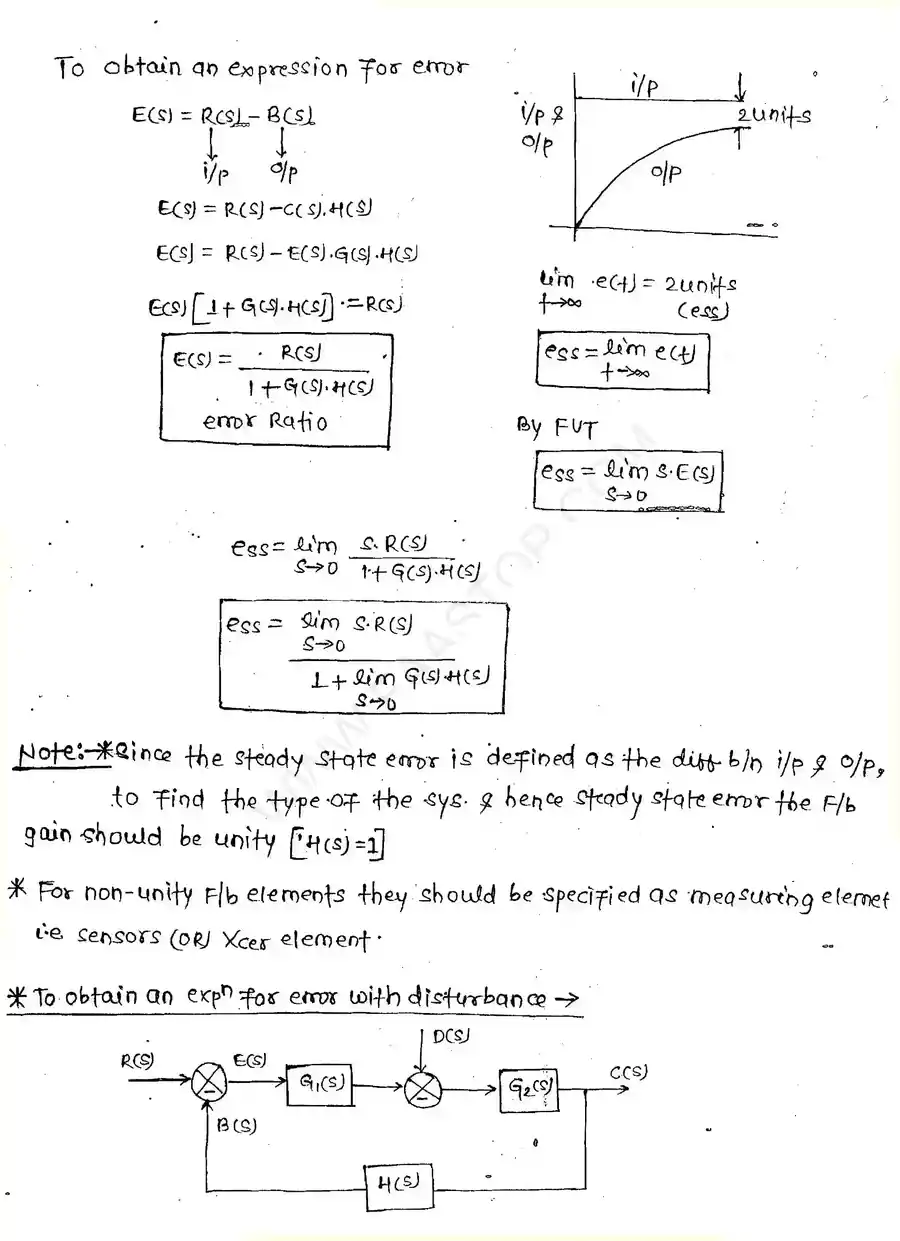 To obtain an expression for error
E(s) = R(s) - B(s)
i/p o/p
E(s) = R(s) - C(s).H(s)
E(s) = R(s) - E(s).G(s).H(s)
E(s) [1 + G(s).H(s)] = R(s)
E(s) = R(s)
1 + G(s).H(s)
error Ratio
i/p
i/p &
o/p
2 units
o/p
lim e(t) = 2 units
t→∞ (ess)
ess = lim e(t)
t→∞
By FVT
ess = lim s.E(s)
s→0
ess = lim s.R(s)
s→0 1 + G(s).H(s)
ess = lim s.R(s)
s→0
1 + lim G(s).H(s)
s→0
Note:→ * Since the steady state error is defined as the diff b/n i/p & o/p,
to find the type of the sys. & hence steady state error the F/b
gain should be unity [H(s)=1]
* For non-unity F/b elements they should be specified as measuring elemet
i.e sensors (OR) Xcer element.
* To obtain an expⁿ for error with disturbance →
D(s)
R(s) E(s) G₁(s) G₂(s) C(s)
B(s)
H(s)